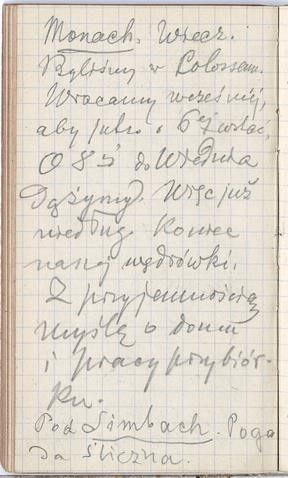 Monach. Wiecz.
Byliśmy w Colosseum.
Wracamy wcześniej,
aby jutro o 6ej wstać,
O 8 5 do Wiednia
Dążymy. Więc już
niedług. koniec
naszej wędrówki.
Z przyjemnością
myślę o domu
i pracy przy biór-
ku.
Pod Simbach. Pogo
da śliczna.